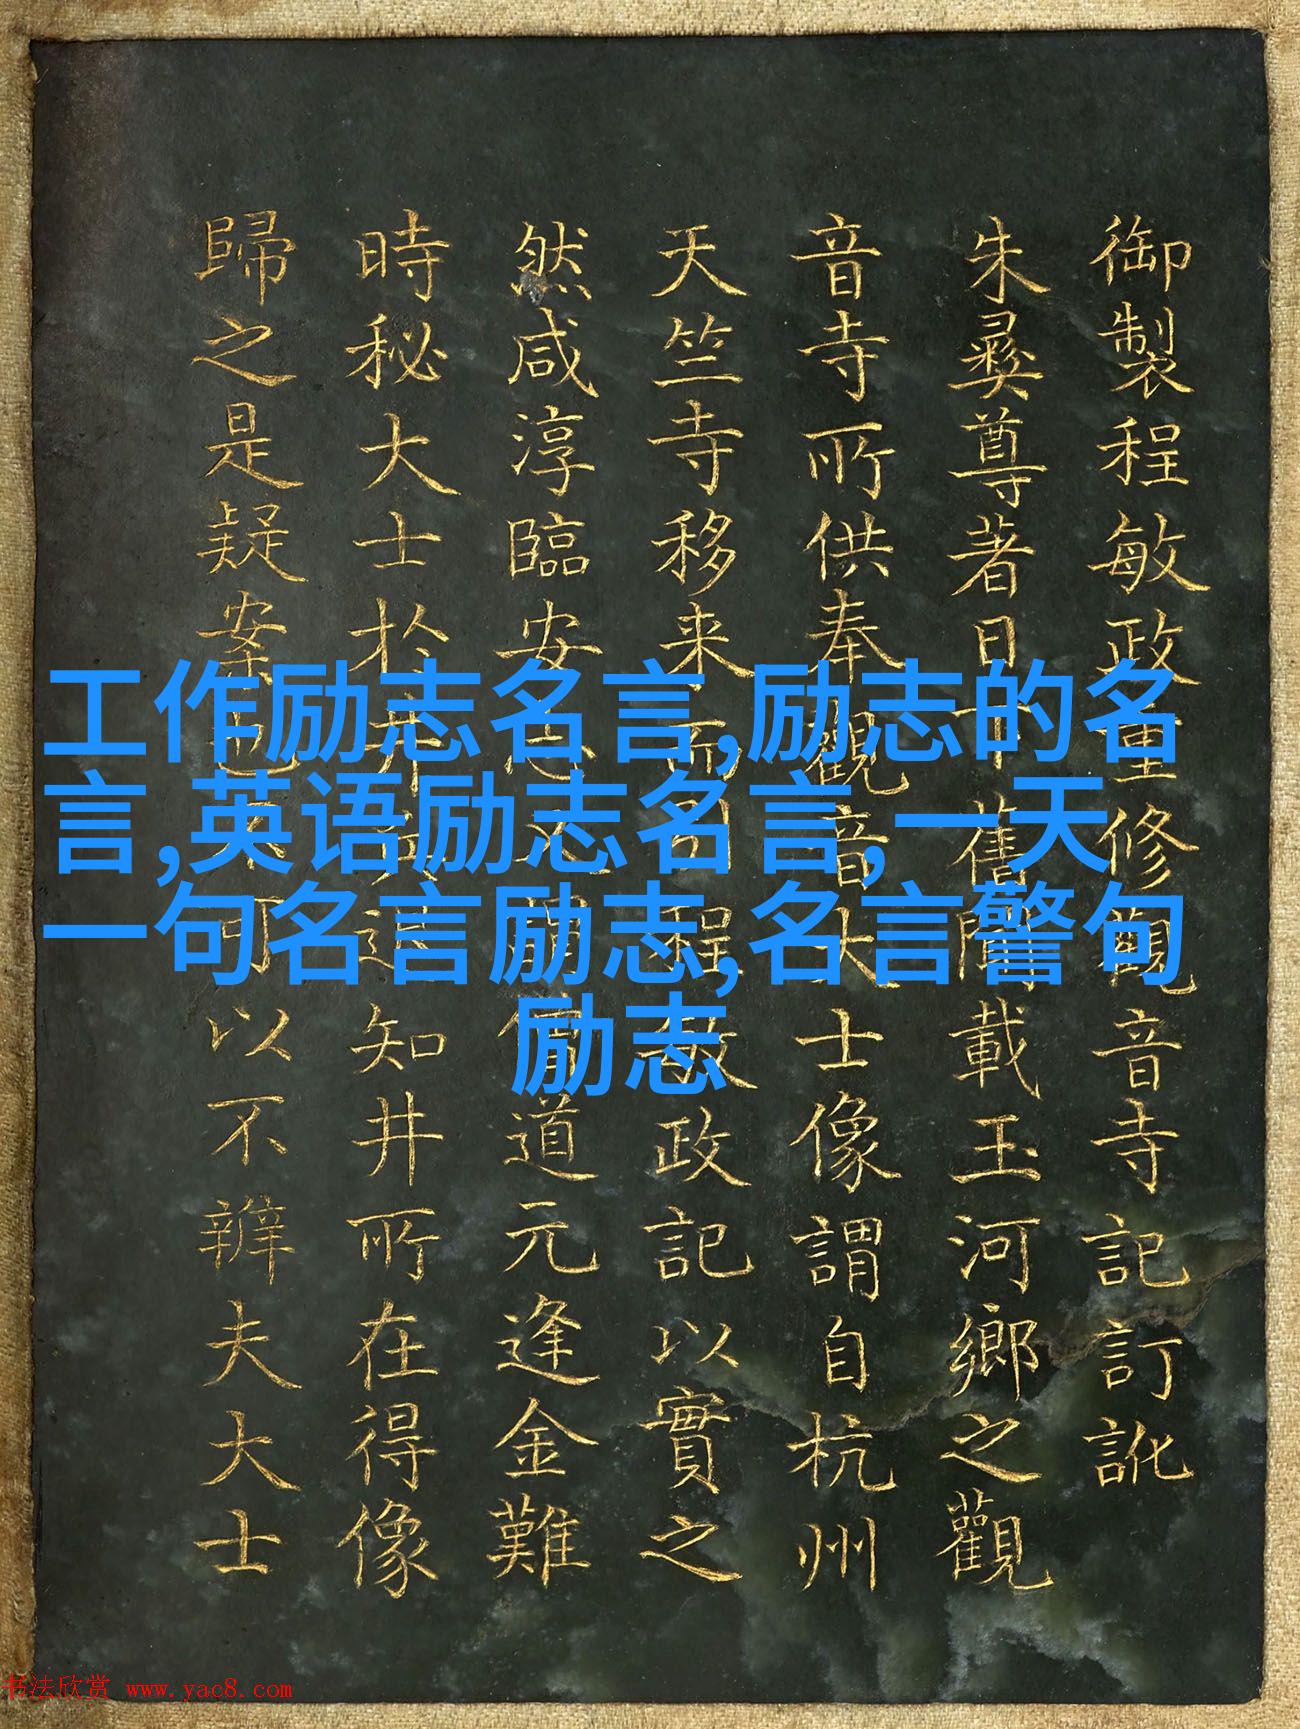 御製程敏政重修觀音寺記訂訛
朱彝尊著日下舊聞載玉河鄉之觀
音寺所供奉觀音大士像謂自杭州
天竺寺移来而引程敏政記以實之
然咸淳臨安志又謂僧道元逢金難
時秘大士於井兵退知井所在得像
歸之是疑案已不可以不辨夫大士
工作励志名言,励志的名
言,英语励志名言,一天
一句名言励志,名言警句
励志
书法欣赏 www.yac8.com